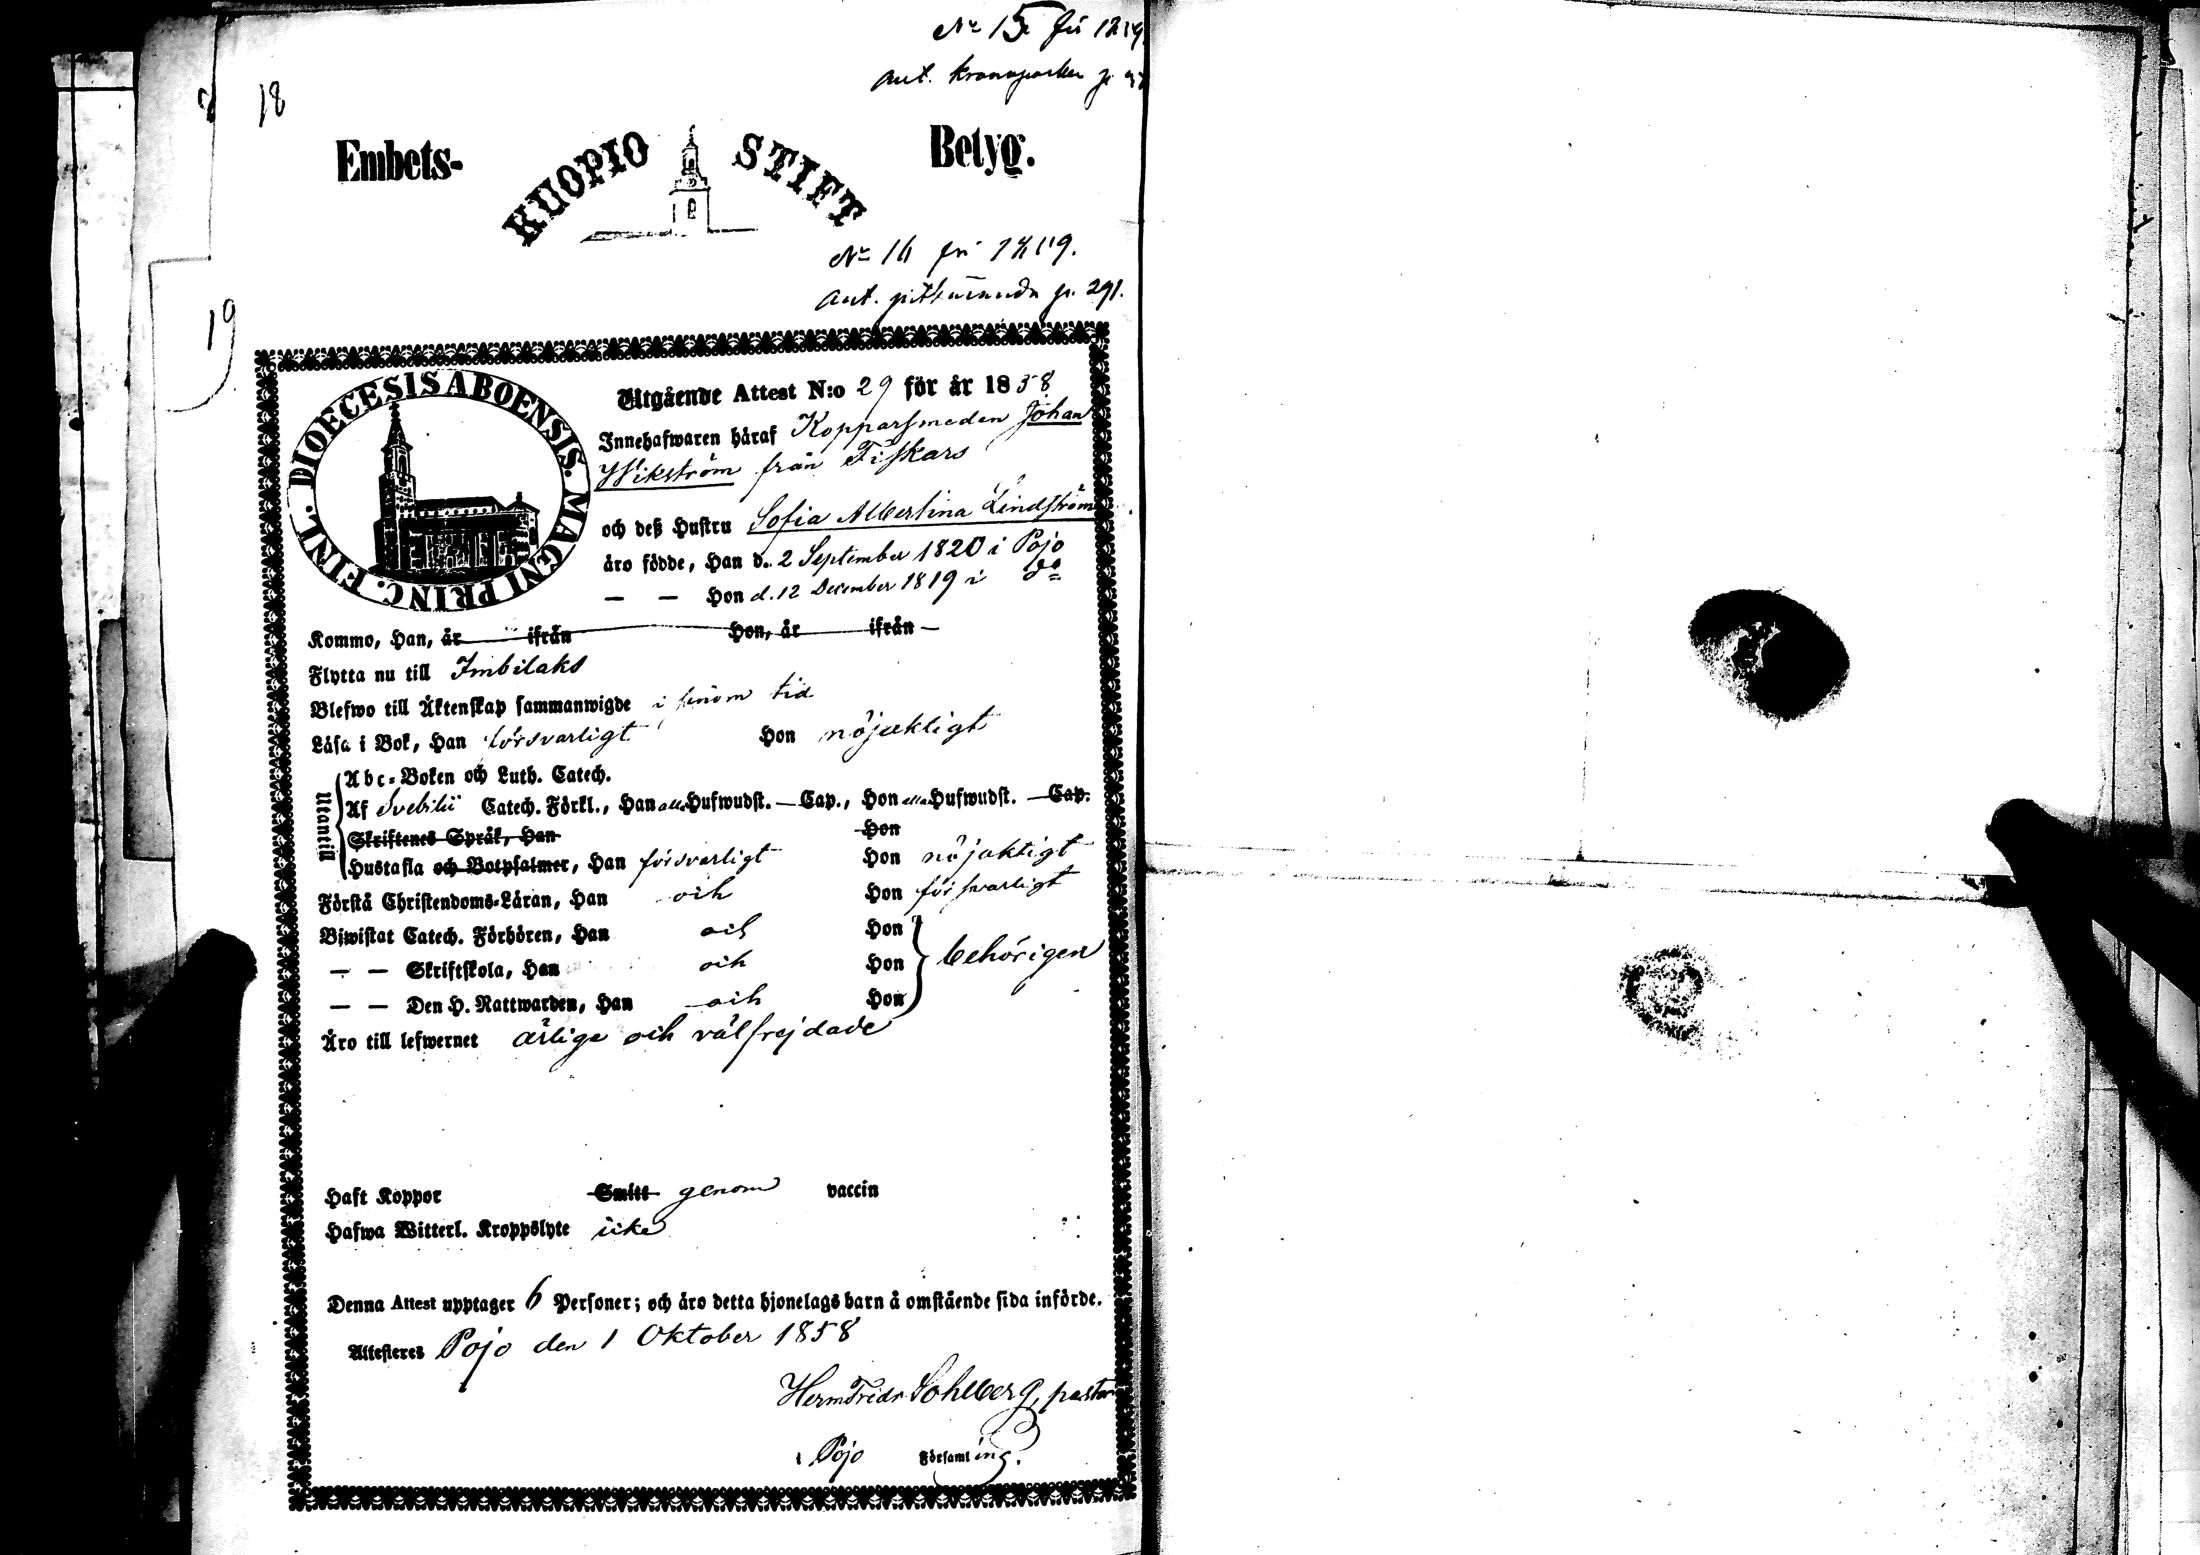 No 15 för 1859
ant.
18
Embets- KUOPIO STIFT Betyg.
No 16 för 1859.
ant. p. 291.
19
DIOECESIS ABOENSIS. MAGNI PRINC. FINL.
Utgående Attest N:o 29 för år 1858
Innehafwaren häraf Kopparsmeden Johan
Wikström från Fiskars
och deß Hustru Sofia Albertina Lindström
äro födde, Han d. 2 September 1820 i Pojo
— — Hon d. 12 December 1819 i do
Kommo, Han, år ifrån Hon, år ifrån —
Flytta nu till Imbilaks
Blefwo till Äktenskap sammanwigde i tid
Läsa i Bok, Han försvarligt Hon nöjaktigt
Utantill
Abc-Boken och Luth. Catech.
Af Svebilii Catech. Förkl., Han alla Hufwudst. — Cap., Hon alla Hufwudst. — Cap.
Skriftenes Språk, Han Hon
Hustafla och Botpsalmer, Han försvarligt Hon nöjaktigt
Förstå Christendoms-Läran, Han och Hon försvarligt
Biwistat Catech. Förhören, Han och Hon
— — Skriftskola, Han och Hon behörigen
— — Den H. Nattwarden, Han och Hon
Äro till lefwernet ärlige och välfrejdade
Haft Koppor Smitt genom vaccin
Hafwa Witterl. Kroppslyte icke
Denna Attest upptager 6 Personer; och äro detta hjonelags barn å omstående sida införde.
Attesteres Pojo den 1 Oktober 1858
Herm Fredr Sohlberg, pastor
i Pojo Församling.